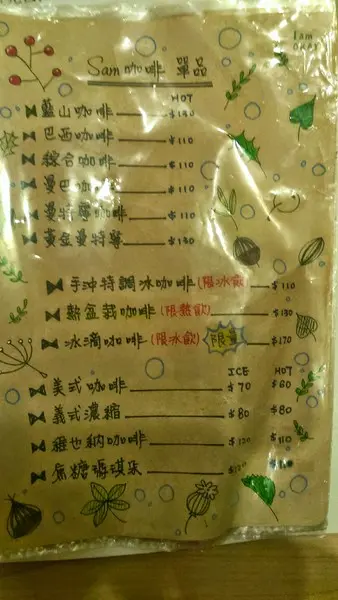 Sam咖啡 單品
HOT
藍山咖啡 $130
巴西咖啡 $110
綜合咖啡 $110
曼巴咖啡 $110
曼特寧咖啡 $110
黃金曼特寧 $130
手沖特調冰咖啡(限冰飲) $110
熱盆栽咖啡(限熱飲) $130
冰滴咖啡(限冰飲) 限量 $170
ICE HOT
美式咖啡 $70 $60
義式濃縮 $80 $80
維也納咖啡 $120 $110
焦糖瑪琪朵 $120